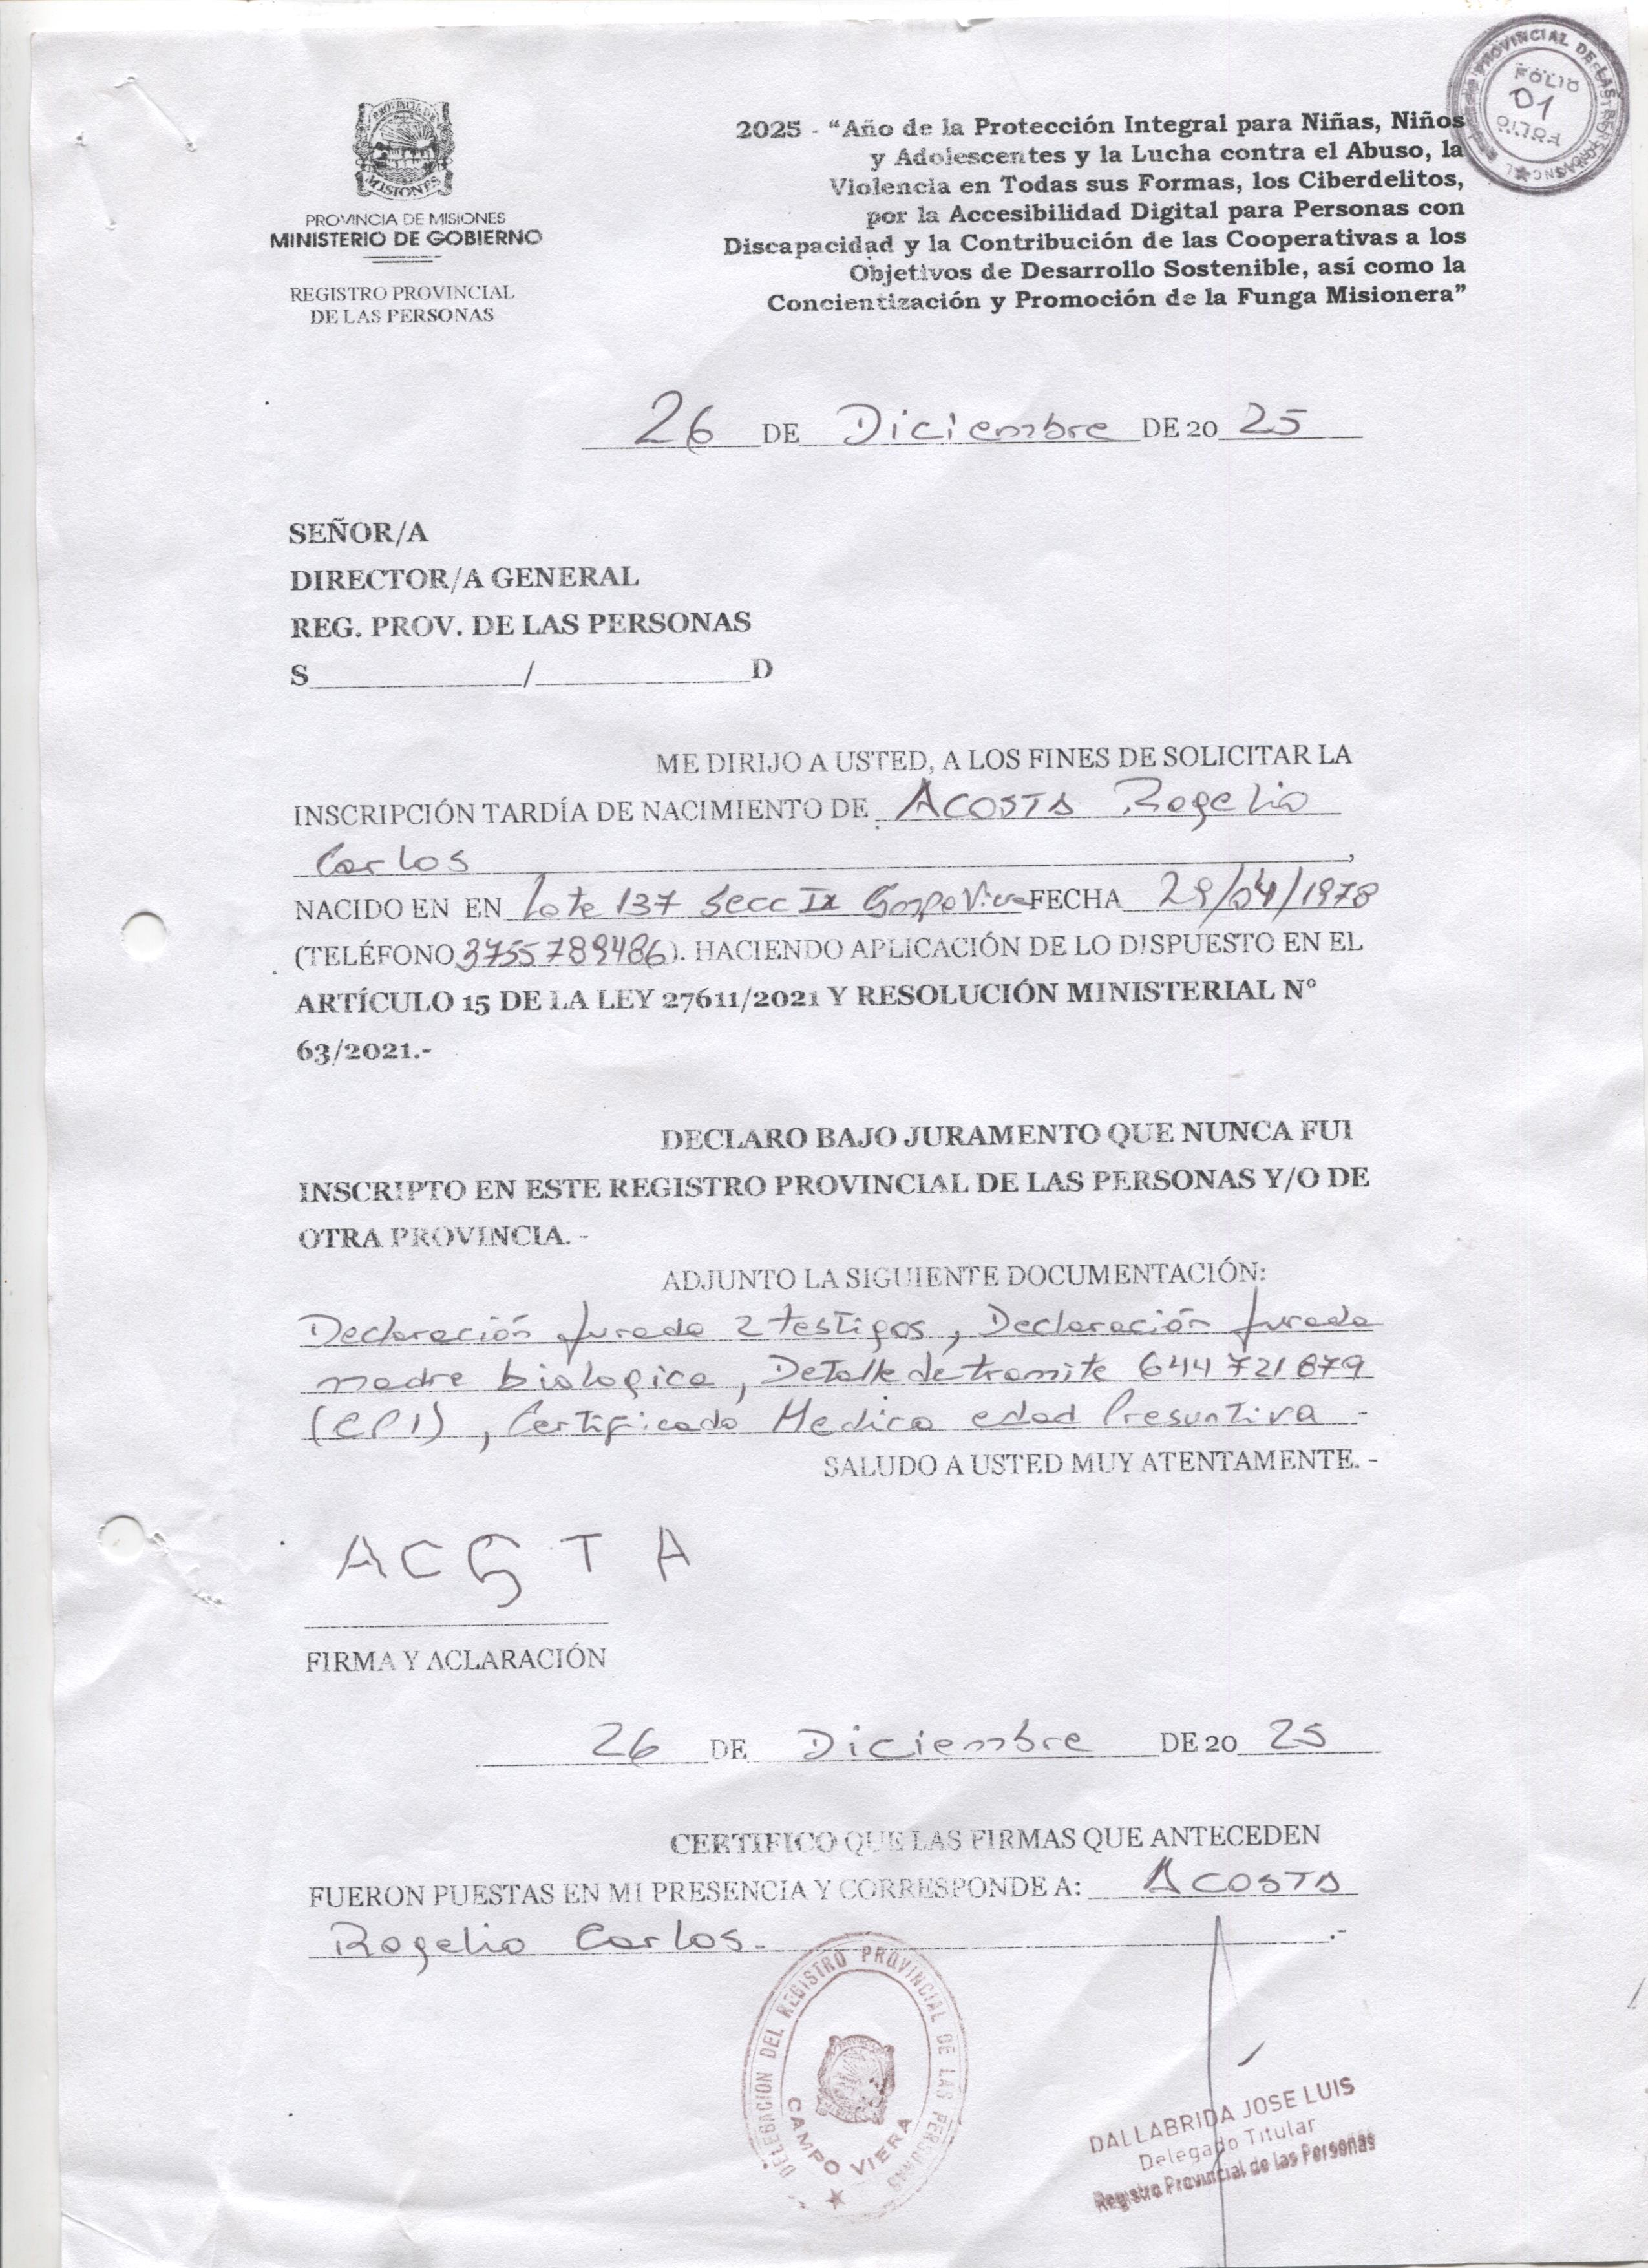 PROVINCIA DE MISIONES
PROVINCIA DE MISIONES
MINISTERIO DE GOBIERNO
REGISTRO PROVINCIAL
DE LAS PERSONAS
FOLIO
01
FOLIO
2025 - “Año de la Protección Integral para Niñas, Niños
y Adolescentes y la Lucha contra el Abuso, la
Violencia en Todas sus Formas, los Ciberdelitos,
por la Accesibilidad Digital para Personas con
Discapacidad y la Contribución de las Cooperativas a los
Objetivos de Desarrollo Sostenible, así como la
Concientización y Promoción de la Funga Misionera”
26 DE Diciembre DE 20 25
SEÑOR/A
DIRECTOR/A GENERAL
REG. PROV. DE LAS PERSONAS
S____________/____________D
ME DIRIJO A USTED, A LOS FINES DE SOLICITAR LA
INSCRIPCIÓN TARDÍA DE NACIMIENTO DE ACOSTA Rogelio
Carlos,
NACIDO EN EN Lote 137 Secc IX Campo Viera FECHA 29/04/1978
(TELÉFONO 3755789486). HACIENDO APLICACIÓN DE LO DISPUESTO EN EL
ARTÍCULO 15 DE LA LEY 27611/2021 Y RESOLUCIÓN MINISTERIAL N°
63/2021.-
DECLARO BAJO JURAMENTO QUE NUNCA FUI
INSCRIPTO EN ESTE REGISTRO PROVINCIAL DE LAS PERSONAS Y/O DE
OTRA PROVINCIA. -
ADJUNTO LA SIGUIENTE DOCUMENTACIÓN:
Declaración Jurada 2 testigos, Declaración Jurada
madre biologica, Detalle de tramite 644721879
(CPI), Certificado Medico edad Presuntiva -
SALUDO A USTED MUY ATENTAMENTE. -
ACOSTA
FIRMA Y ACLARACIÓN
26 DE Diciembre DE 20 25
CERTIFICO QUE LAS FIRMAS QUE ANTECEDEN
FUERON PUESTAS EN MI PRESENCIA Y CORRESPONDE A: ACOSTA
Rogelio Carlos. .-
DELEGACION DEL REGISTRO PROVINCIAL DE LAS PERSONAS
CAMPO VIERA
DALLABRIDA JOSE LUIS
Delegado Titular
Registro Provincial de las Personas